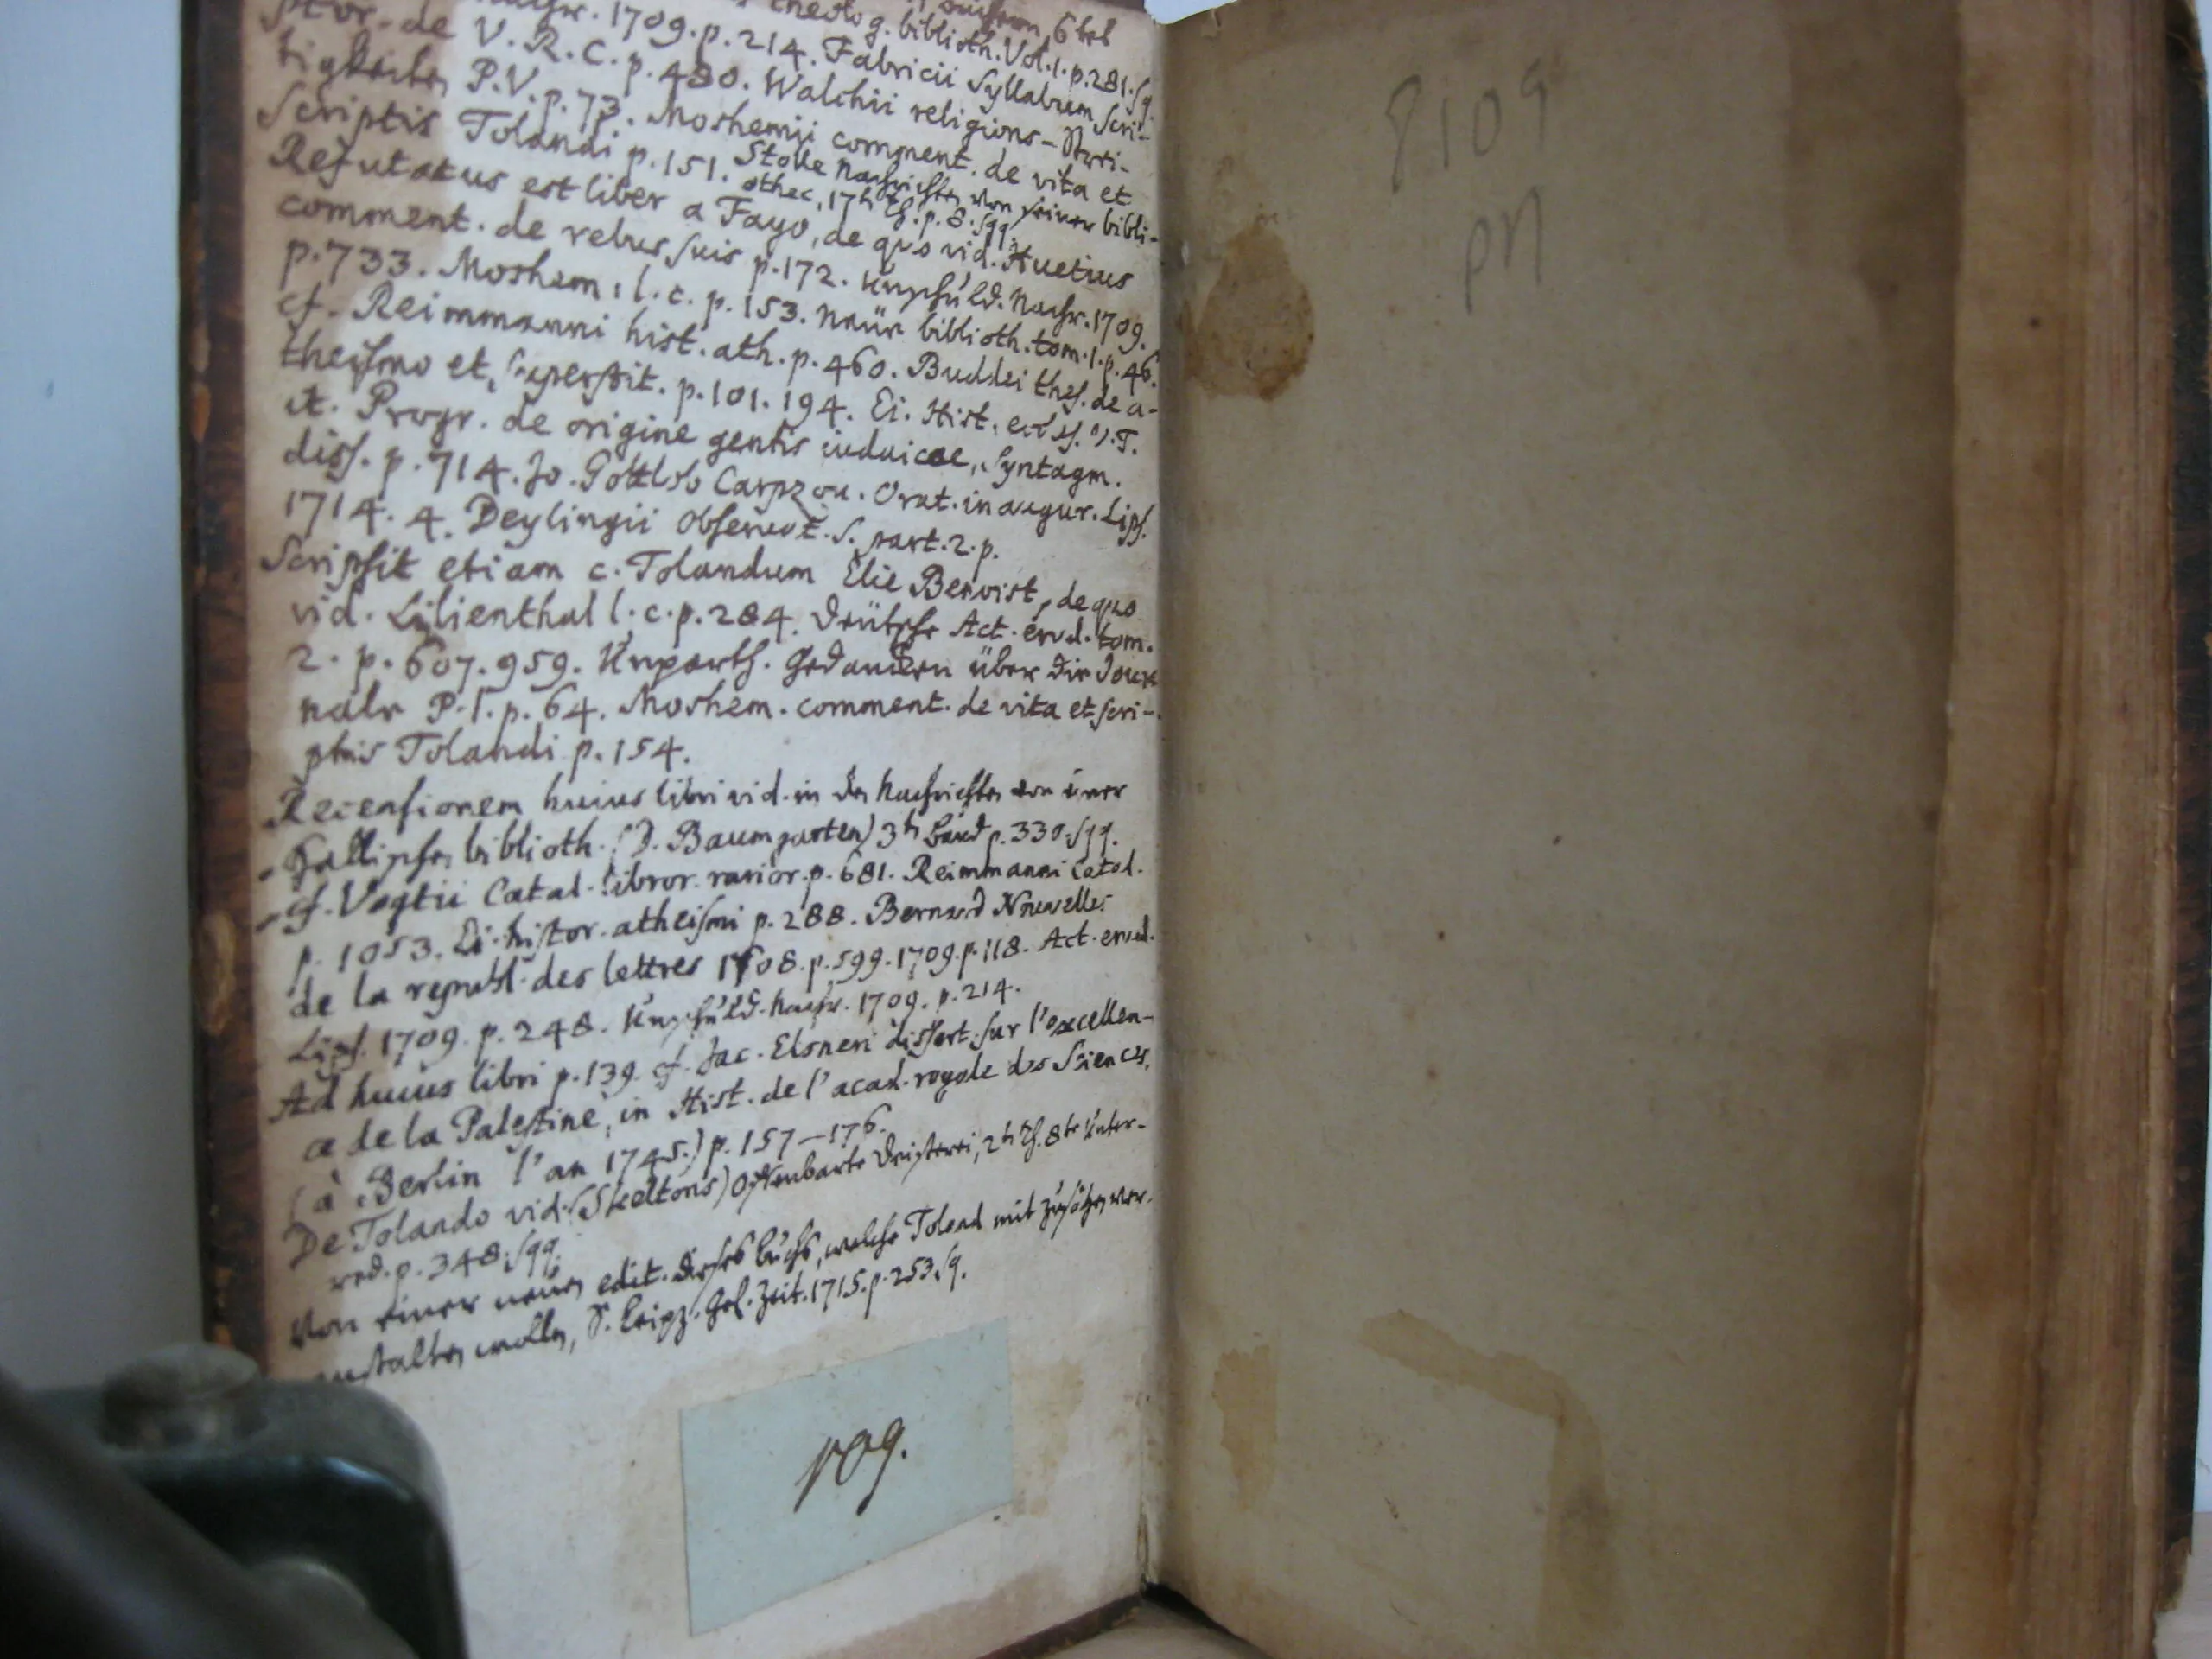 theolog. biblioth. Vol. 1. p. 281. sq.
1709. p. 214. Fabricii Syllabum Scri-
ptor. de V. R. C. p. 480. Walchii religions-Strei-
tigkeiten P. V. p. 73. Moshemii comment. de vita et
Scriptis Tolandi p. 151. Stolle Nachrichten von seiner bibli-
othec, 17h Th. p. 8. sqq.
Refutatus est liber a Fayo, de quo vid. Huetius
comment. de rebus suis p. 172. Unschuld. Nachr. 1709.
p. 733. Moshem. l. c. p. 153. Neüe biblioth. tom. 1. p. 46.
cf. Reimmanni hist. ath. p. 460. Buddei thes. de a-
theismo et superstit. p. 101. 194. Ei. Hist. eccles. V. T.
it. Progr. de origine gentis iudaicae, Syntagm.
diss. p. 714. Jo. Gottlob Carpzou. Orat. inaugur. Lips.
1714. 4. Deylingii Obseruat. S. part. 2. p.
Scripsit etiam c. Tolandum Elie Benoist, de quo
vid. Lilienthal l. c. p. 284. Deütsche Act. erud. tom.
2. p. 607. 959. Unparth. Gedancken über die Jour
nale P. I. p. 64. Moshem. comment. de vita et scri-
ptis Tolandi p. 154.
Recensionem huius libri vid. in den Nachrichten von einer
Hallischen biblioth. (D. Baumgarten) 3h Band p. 330. sqq.
cf. Vogtii Catal. libror. rarior. p. 681. Reimmanni Catal.
p. 1053. Ei. histor. atheismi p. 288. Bernard Nouvelles
de la republ. des lettres 1708. p. 599. 1709. p. 118. Act. erud.
Lips. 1709. p. 248. Unschuld. Nachr. 1709. p. 214.
Ad huius libri p. 139. cf. Jac. Elsneri dissert. sur l'excellen-
ce de la Palestine, in Hist. de l'acad. royale des Sciences,
(à Berlin l'an 1745.) p. 157-176.
De Tolando vid. (Skeltons) Offenbarte Deisterei, 2h Th. 8te Unter-
red. p. 348. sqq.
Von einer neüen edit. dieses Buchs, welche Toland mit Zusätzen ver-
anstalten wollen, S. Leipz. Gel. Zeit. 1715. p. 253. sq.
109.